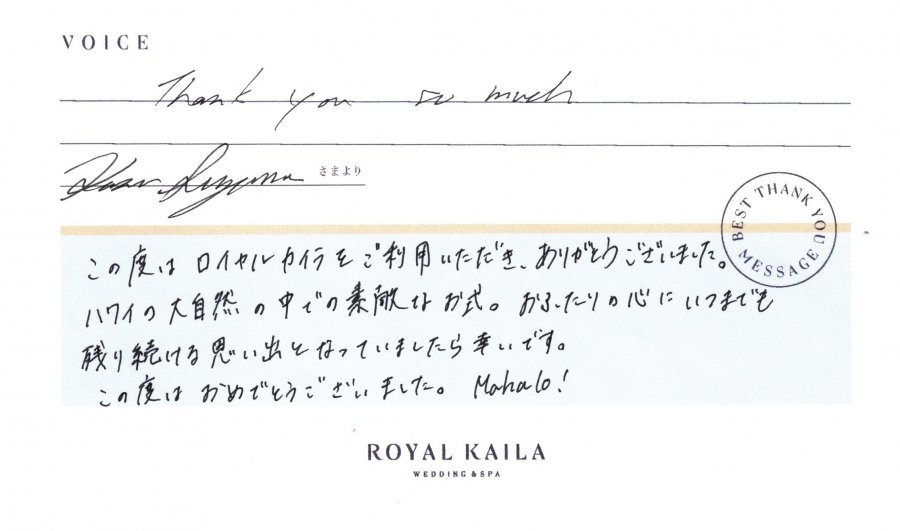 VOICE
Thank you so much
さまより
BEST THANK YOU MESSAGE
この度は ロイヤルカイラをご利用いただき、ありがとうございました。
ハワイの大自然の中での素敵なお式。おふたりの心にいつまでも
残り続ける思い出となっていましたら幸いです。
この度は おめでとうございました。 Mahalo!
ROYAL KAILA
WEDDING & SPA